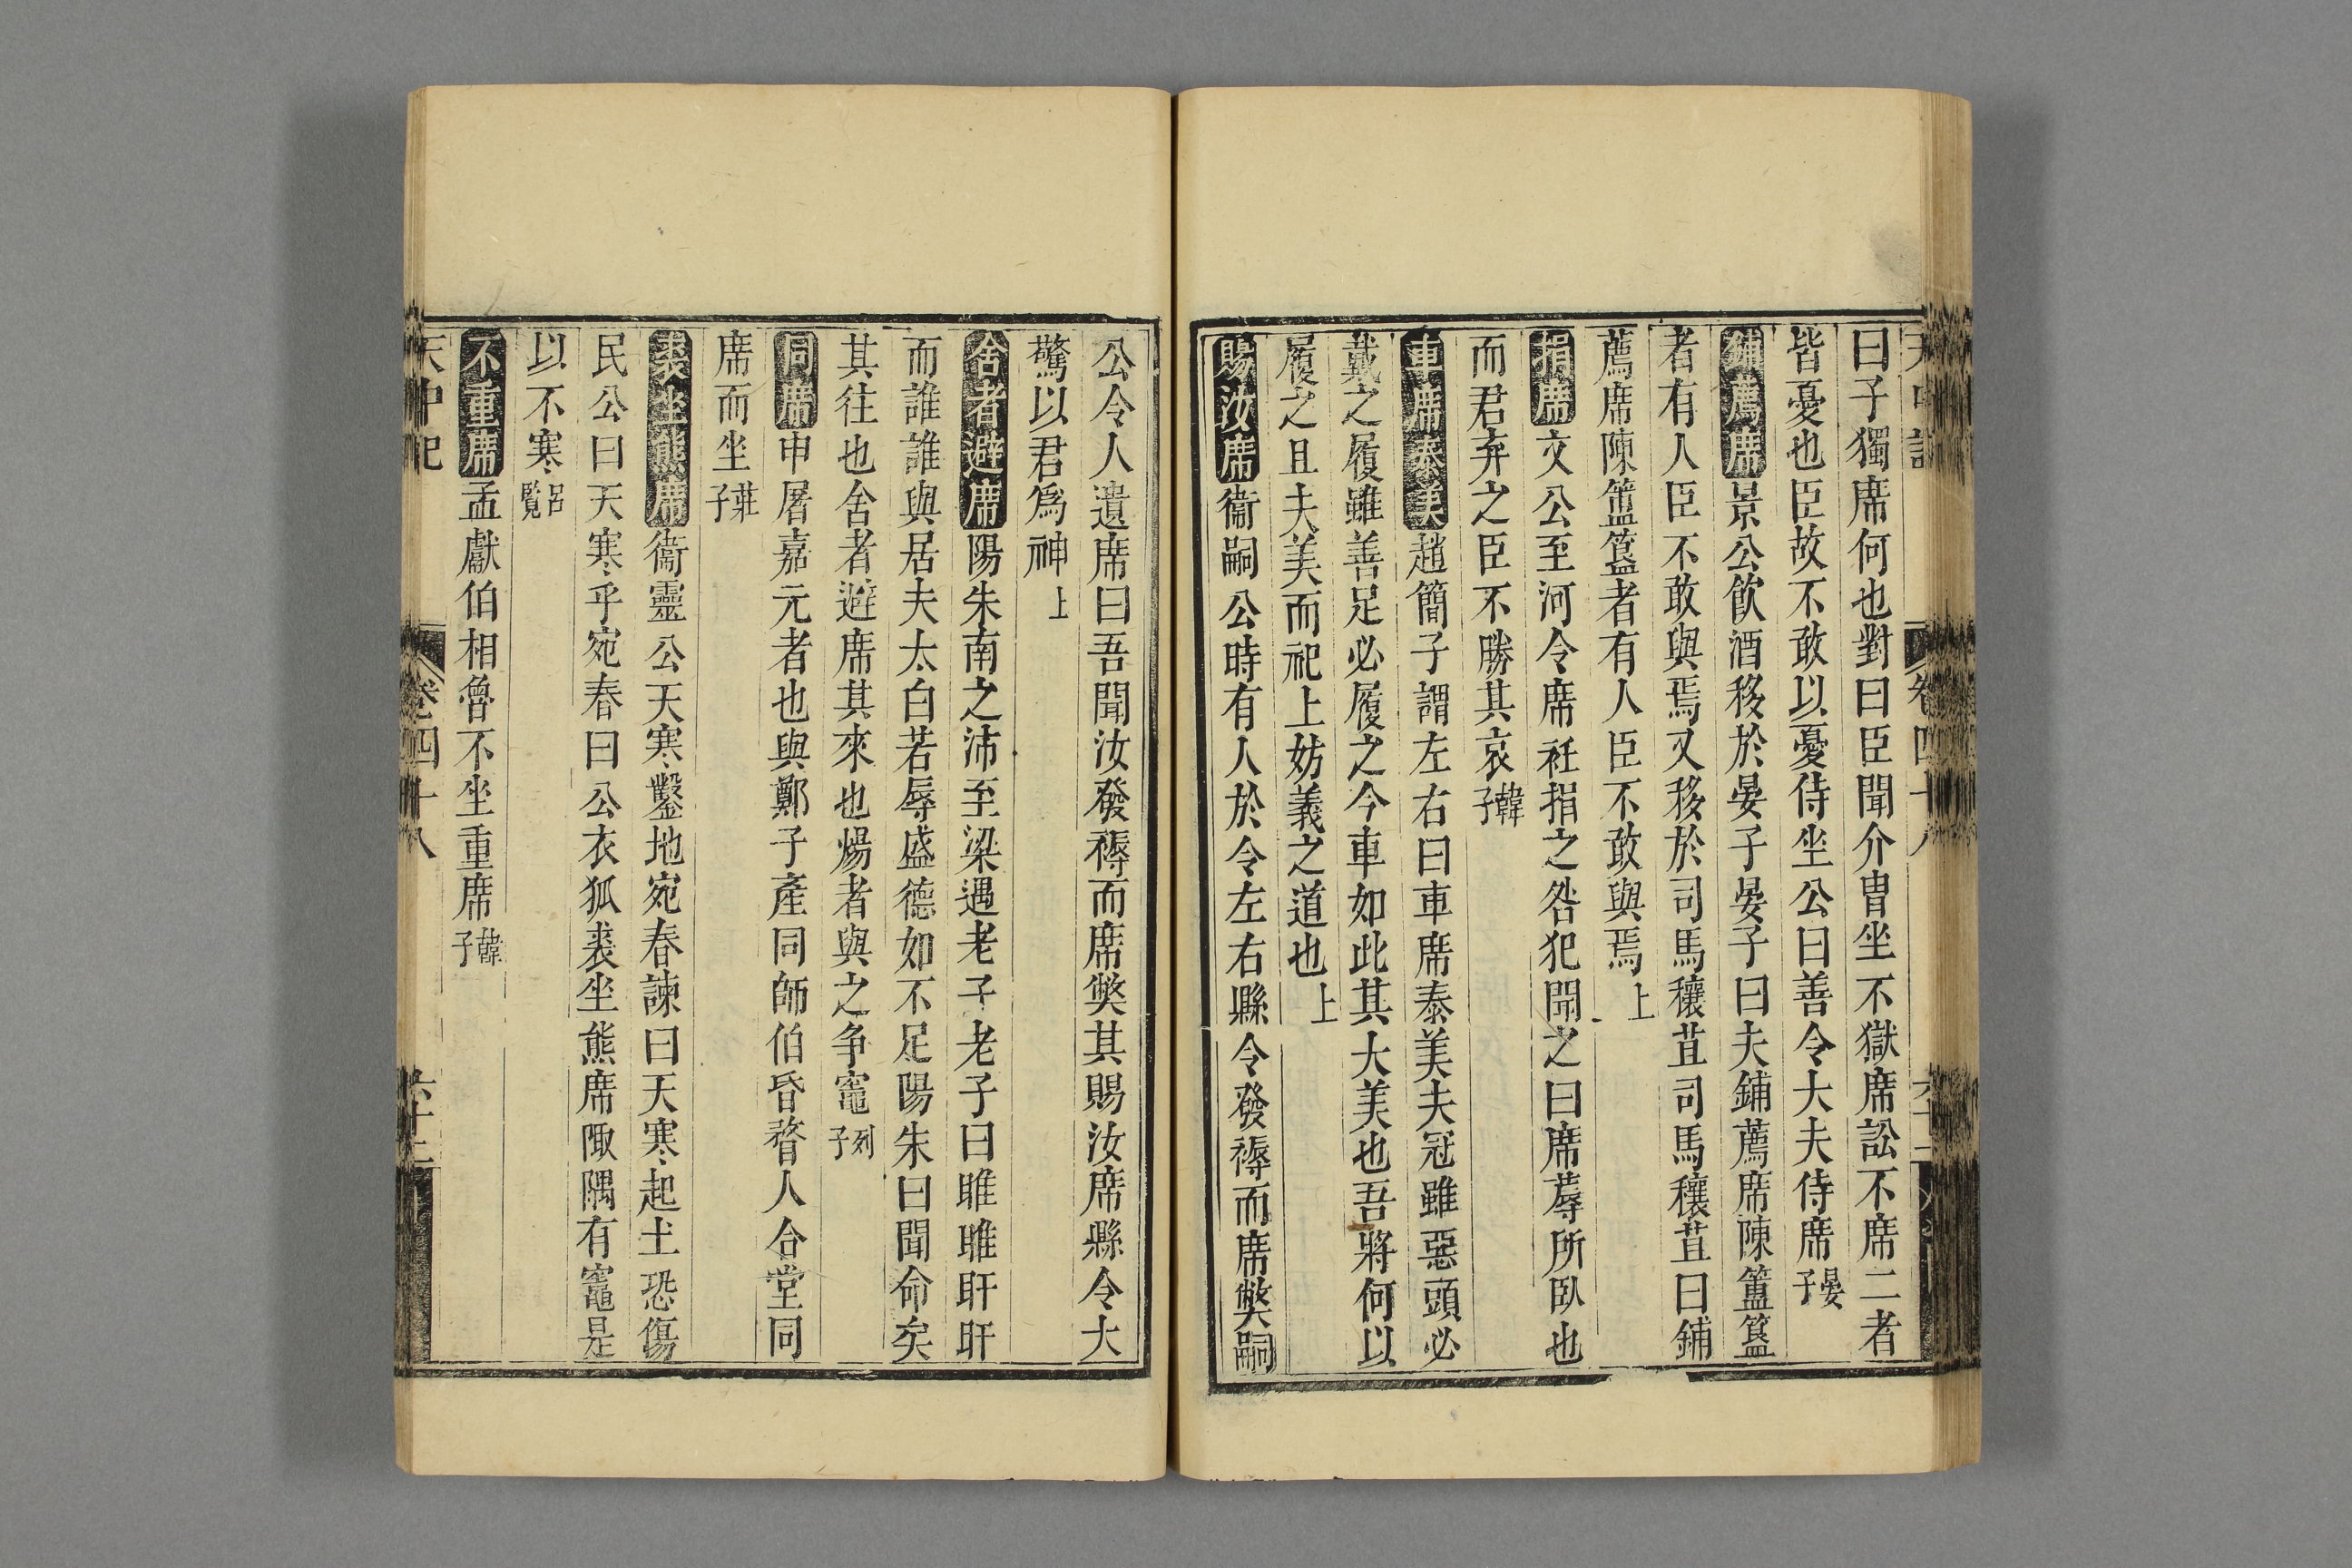 曰子獨席何也對曰臣聞介胄坐不獄席訟不席二者
皆憂也臣故不敢以憂侍坐公曰善令大夫侍席晏子
鋪薦席景公飲酒移於晏子晏子曰夫鋪薦席陳簠簋
者有人臣不敢與焉又移於司馬穰苴司馬穰苴曰鋪
薦席陳簠簋者有人臣不敢與焉上
捐席文公至河令席衽捐之咎犯聞之曰席蓐所臥也
而君弃之臣不勝其哀韓子
車席泰美趙簡子謂左右曰車席泰美夫冠雖惡頭必
戴之履雖善足必履之今車如此其大美也吾將何以
履之且夫美而祀上妨義之道也上
賜汝席衞嗣公時有人於令左右縣令發褥而席獘嗣
公令人遺席曰吾聞汝發褥而席獘其賜汝席縣令大
驚以君爲神上
舍者避席陽朱南之沛至梁遇老子老子曰雎雎盱盱
而誰誰與居夫太白若辱盛德如不足陽朱曰聞命矣
其往也舍者避席其來也煬者與之争竈列子
同席申屠嘉元者也與鄭子產同師伯昏瞀人合堂同
席而坐莊子
裘坐熊席衞靈公天寒鑿地宛春諫曰天寒起土恐傷
民公曰天寒乎宛春曰公衣狐裘坐熊席陬隅有竈是
以不寒呂覧
不重席孟獻伯相魯不坐重席韓子
天中記 卷四十八